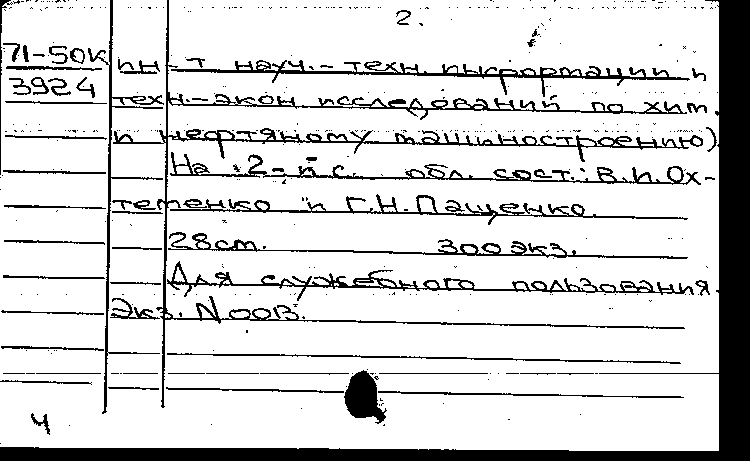 2.
71-50к
3924
ин-т науч.-техн. информации и
техн.-экон исследований по хим.
и нефтяному машиностроению)
На 2-й с. обл. сост.: В.И. Ох-
тетенко и Г.Н. Пащенко.
28см. 300 экз.
Для служебного пользования.
Экз. N 0013.
4